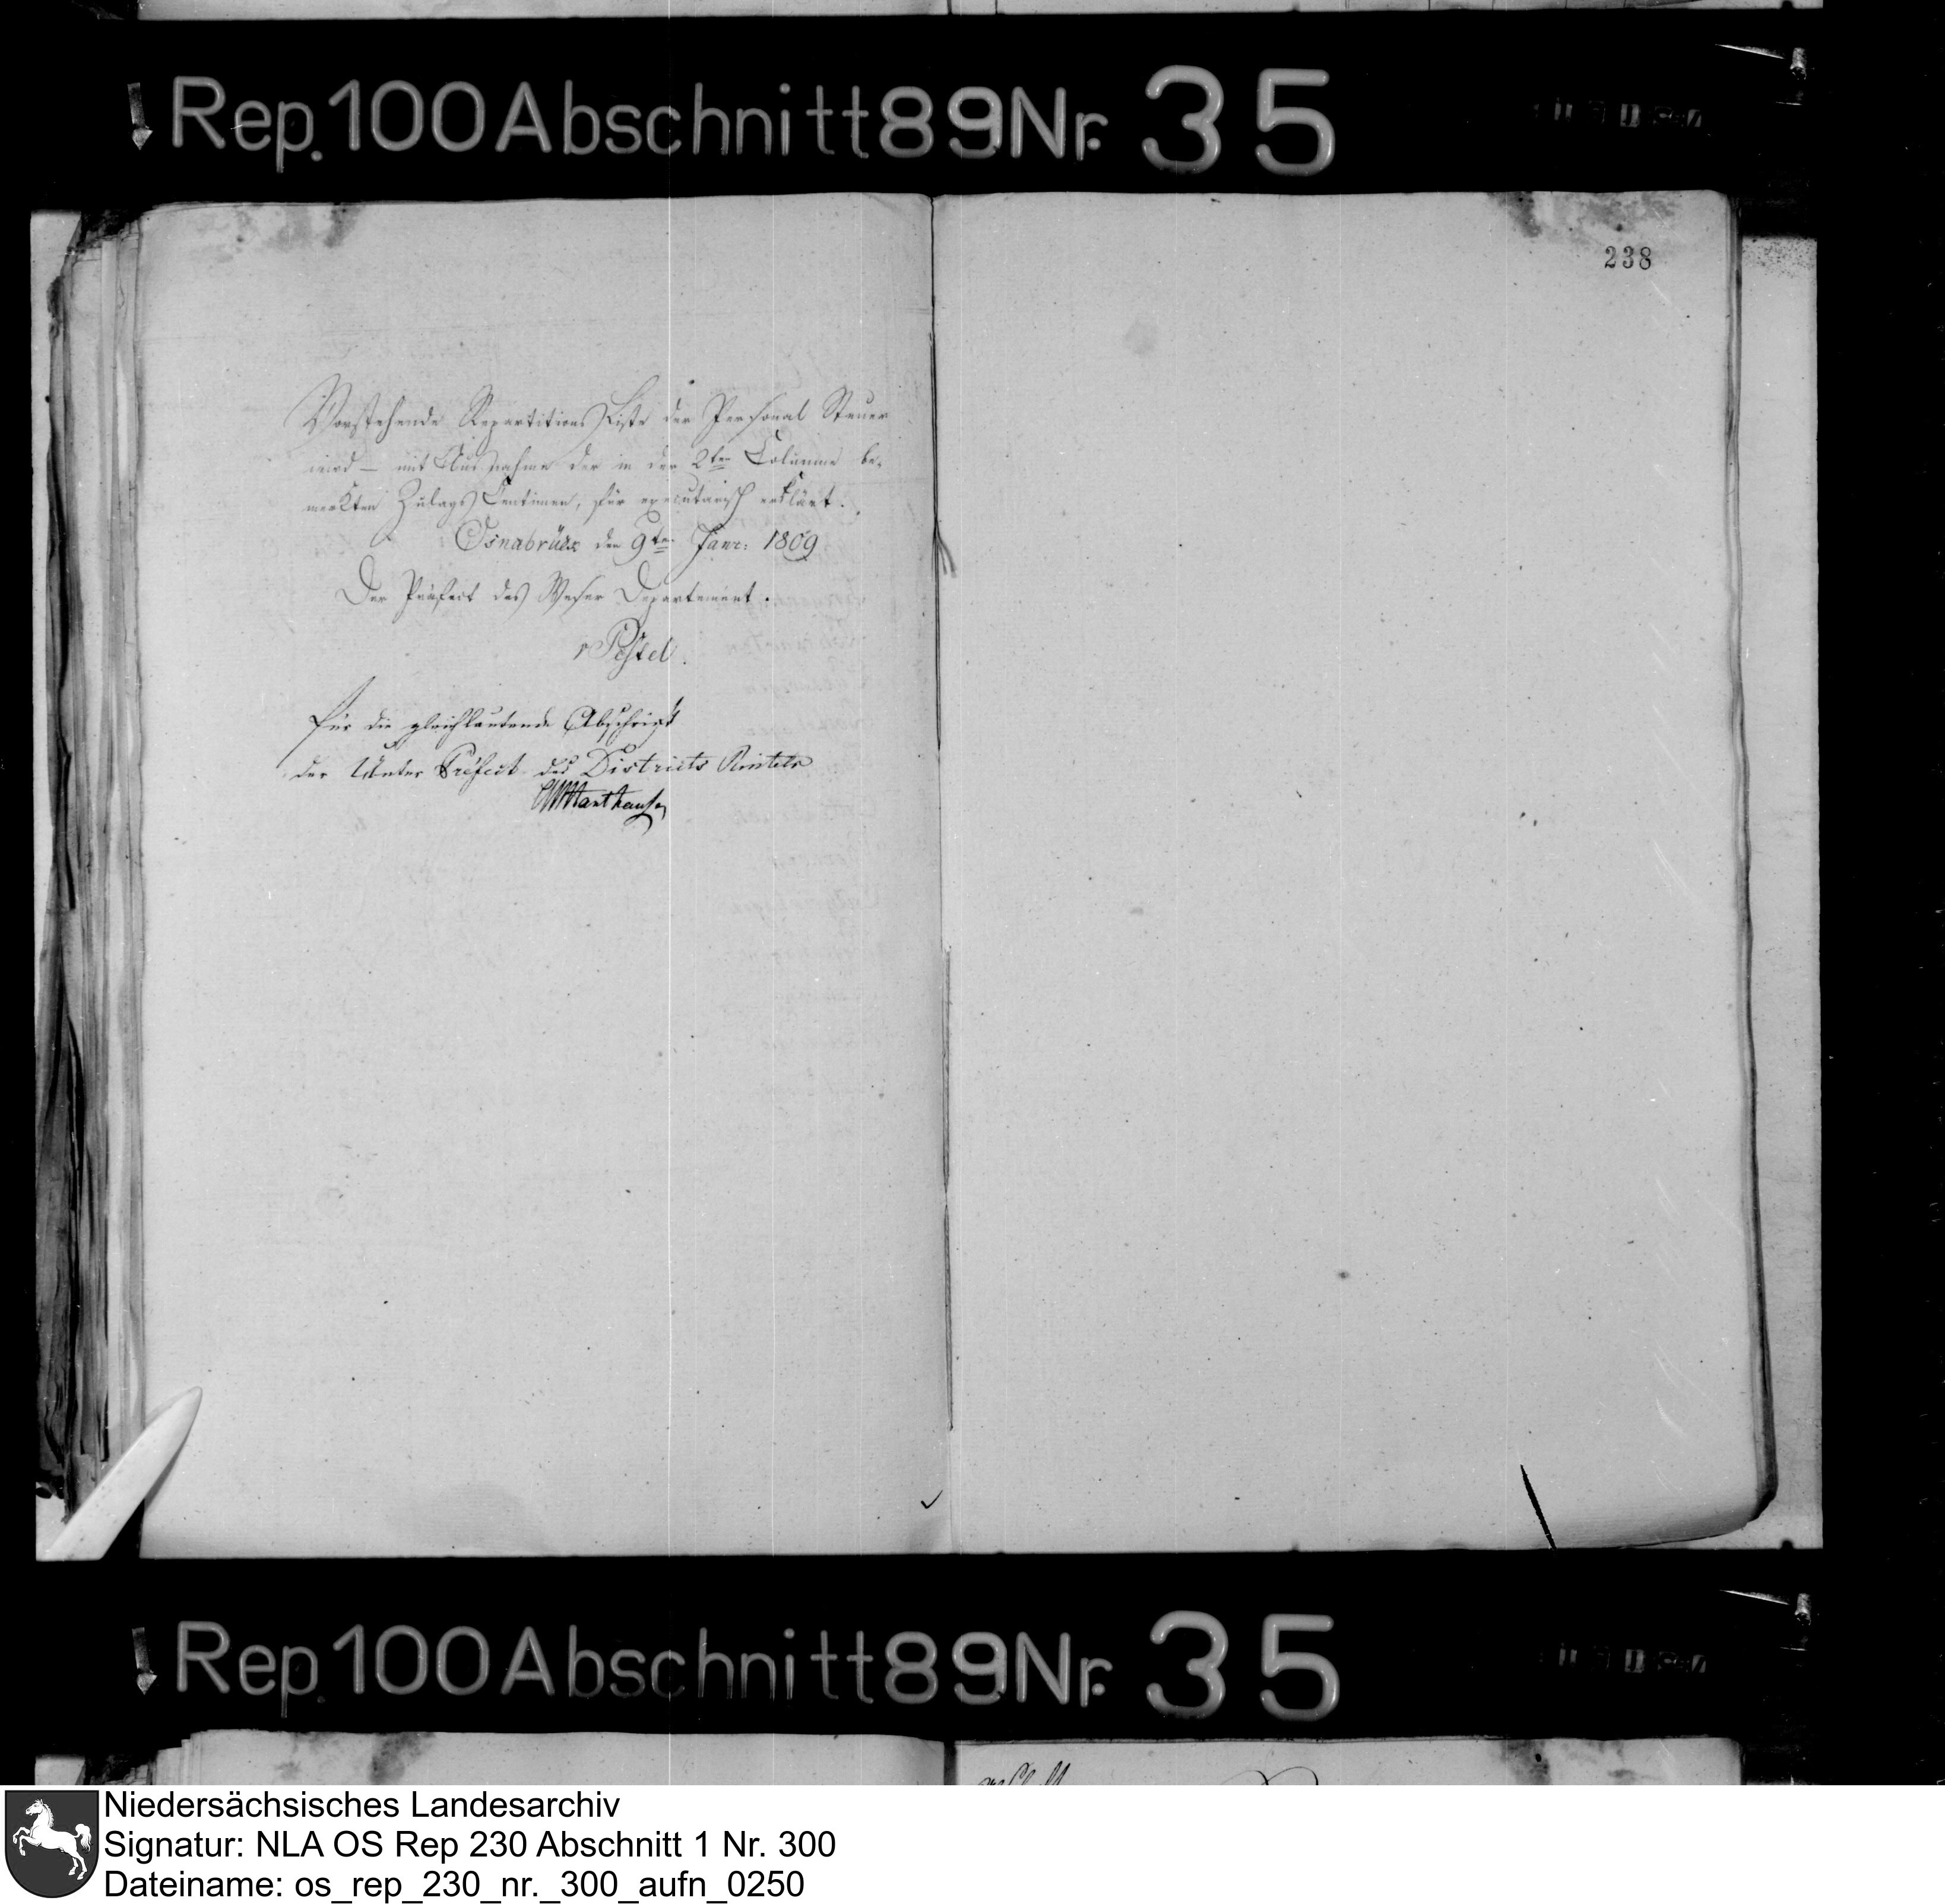 Rep. 100 Abschnitt 89 Nr. 35
238
Vorstehende Repartitions Liste der Personal Steuer
wird – mit Ausnahme der in der 2ten Columne be-
merkten Zulags Centimen, für executorisch erklärt.
Osnabrück den 9ten Janr: 1809
Der Präfect des Weser Departement.
v Pestel.
für die gleichlautende Abschrift
der Unter Präfect des Districts Rinteln
Rep. 100 Abschnitt 89 Nr. 35
Niedersächsisches Landesarchiv
Signatur: NLA OS Rep 230 Abschnitt 1 Nr. 300
Dateiname: os_rep_230_nr._300_aufn_0250